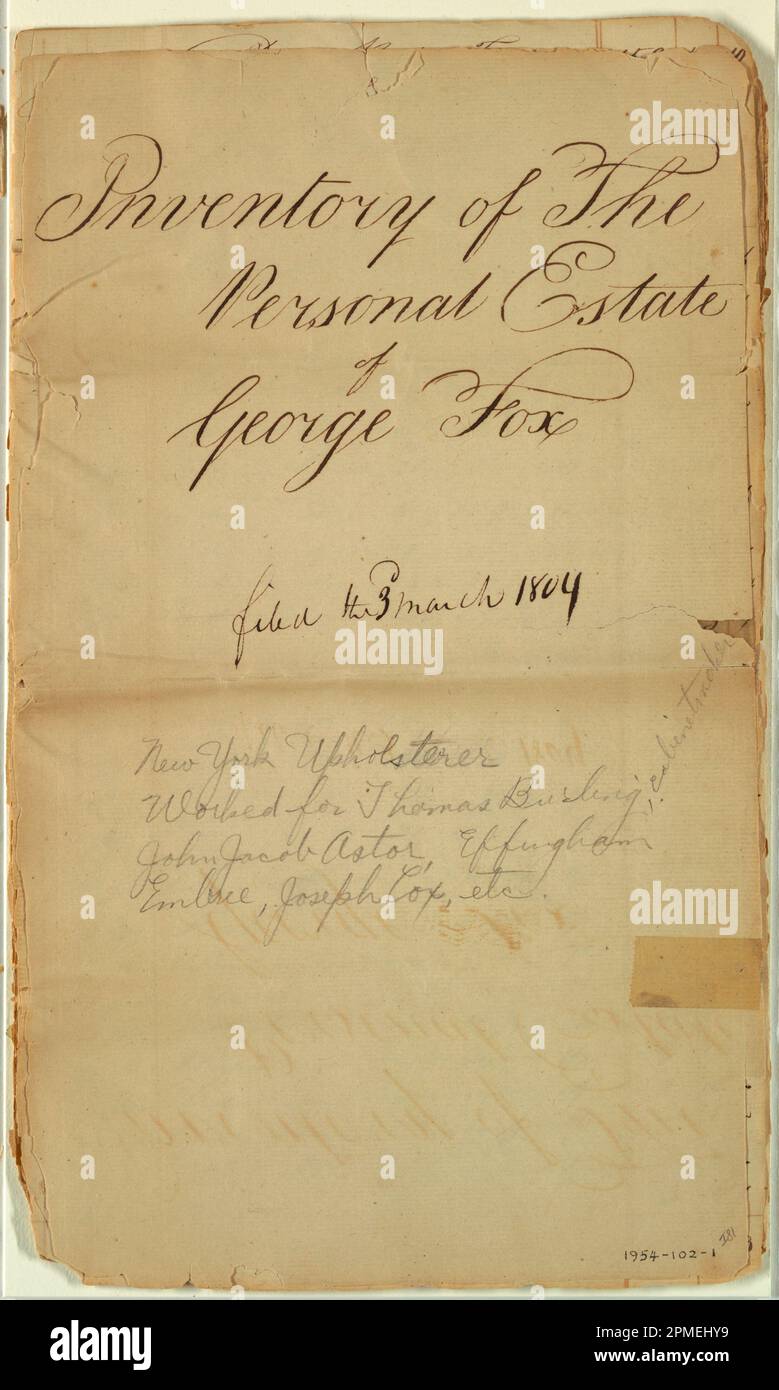 Inventory of The
Personal Estate
of
George Fox
filed the 3d march 1804
New York Upholsterer
Worked for Thomas Burling, cabinetmaker
John Jacob Astor, Effingham
Embree, Joseph Cox, etc.
1954-102-1
alamy
a
alamy
Image ID: 2PMEHY9
www.alamy.com